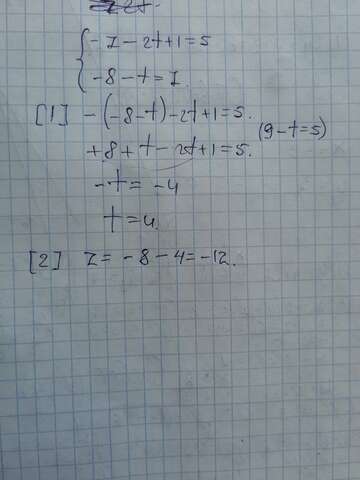 -z-2t+1=5
-8-t=z
[1] -(-8-t)-2t+1=5.
(9-t=5)
+8+t-2t+1=5.
-t=-4
t=4.
[2] z=-8-4=-12.